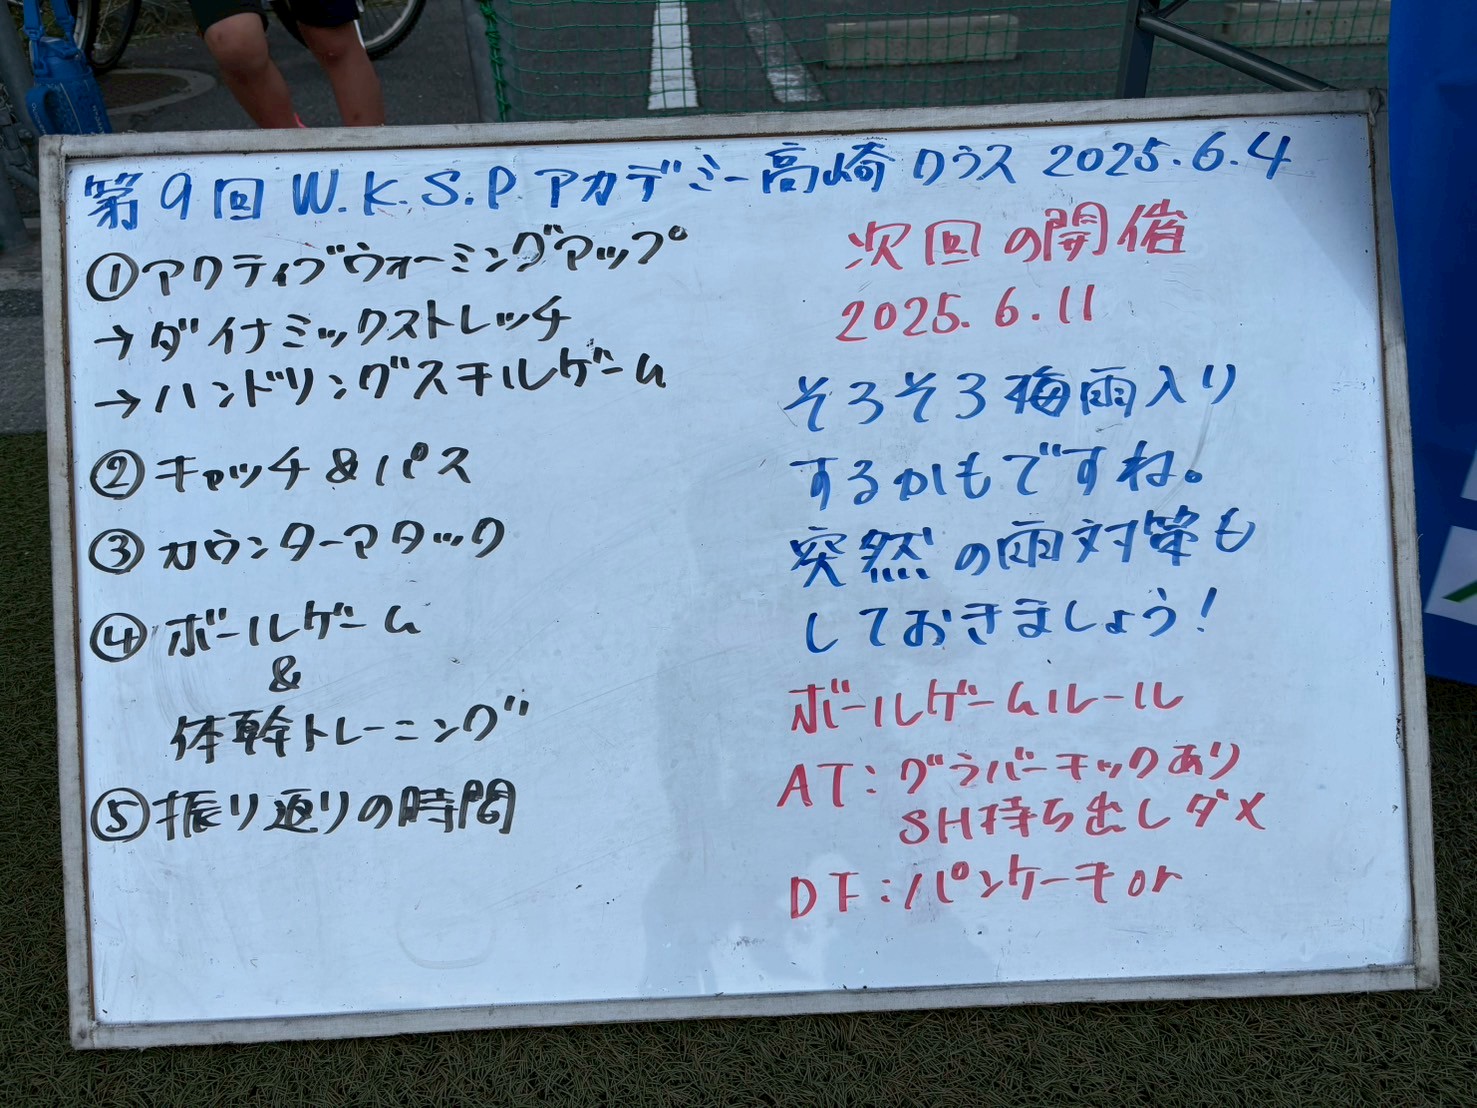 第9回 W.K.S.P.アカデミー高崎クラス 2025.6.4
①アクティブウォーミングアップ
→ダイナミックストレッチ
→ハンドリングスキルゲーム
②キャッチ&パス
③カウンターアタック
④ボールゲーム
&
体幹トレーニング
⑤振り返りの時間
次回の開催
2025.6.11
そろそろ梅雨入り
するかもですね。
突然の雨対策も
しておきましょう!
ボールゲームルール
AT:グラバーキックあり
SH持ち出しダメ
DF:パンケーキor